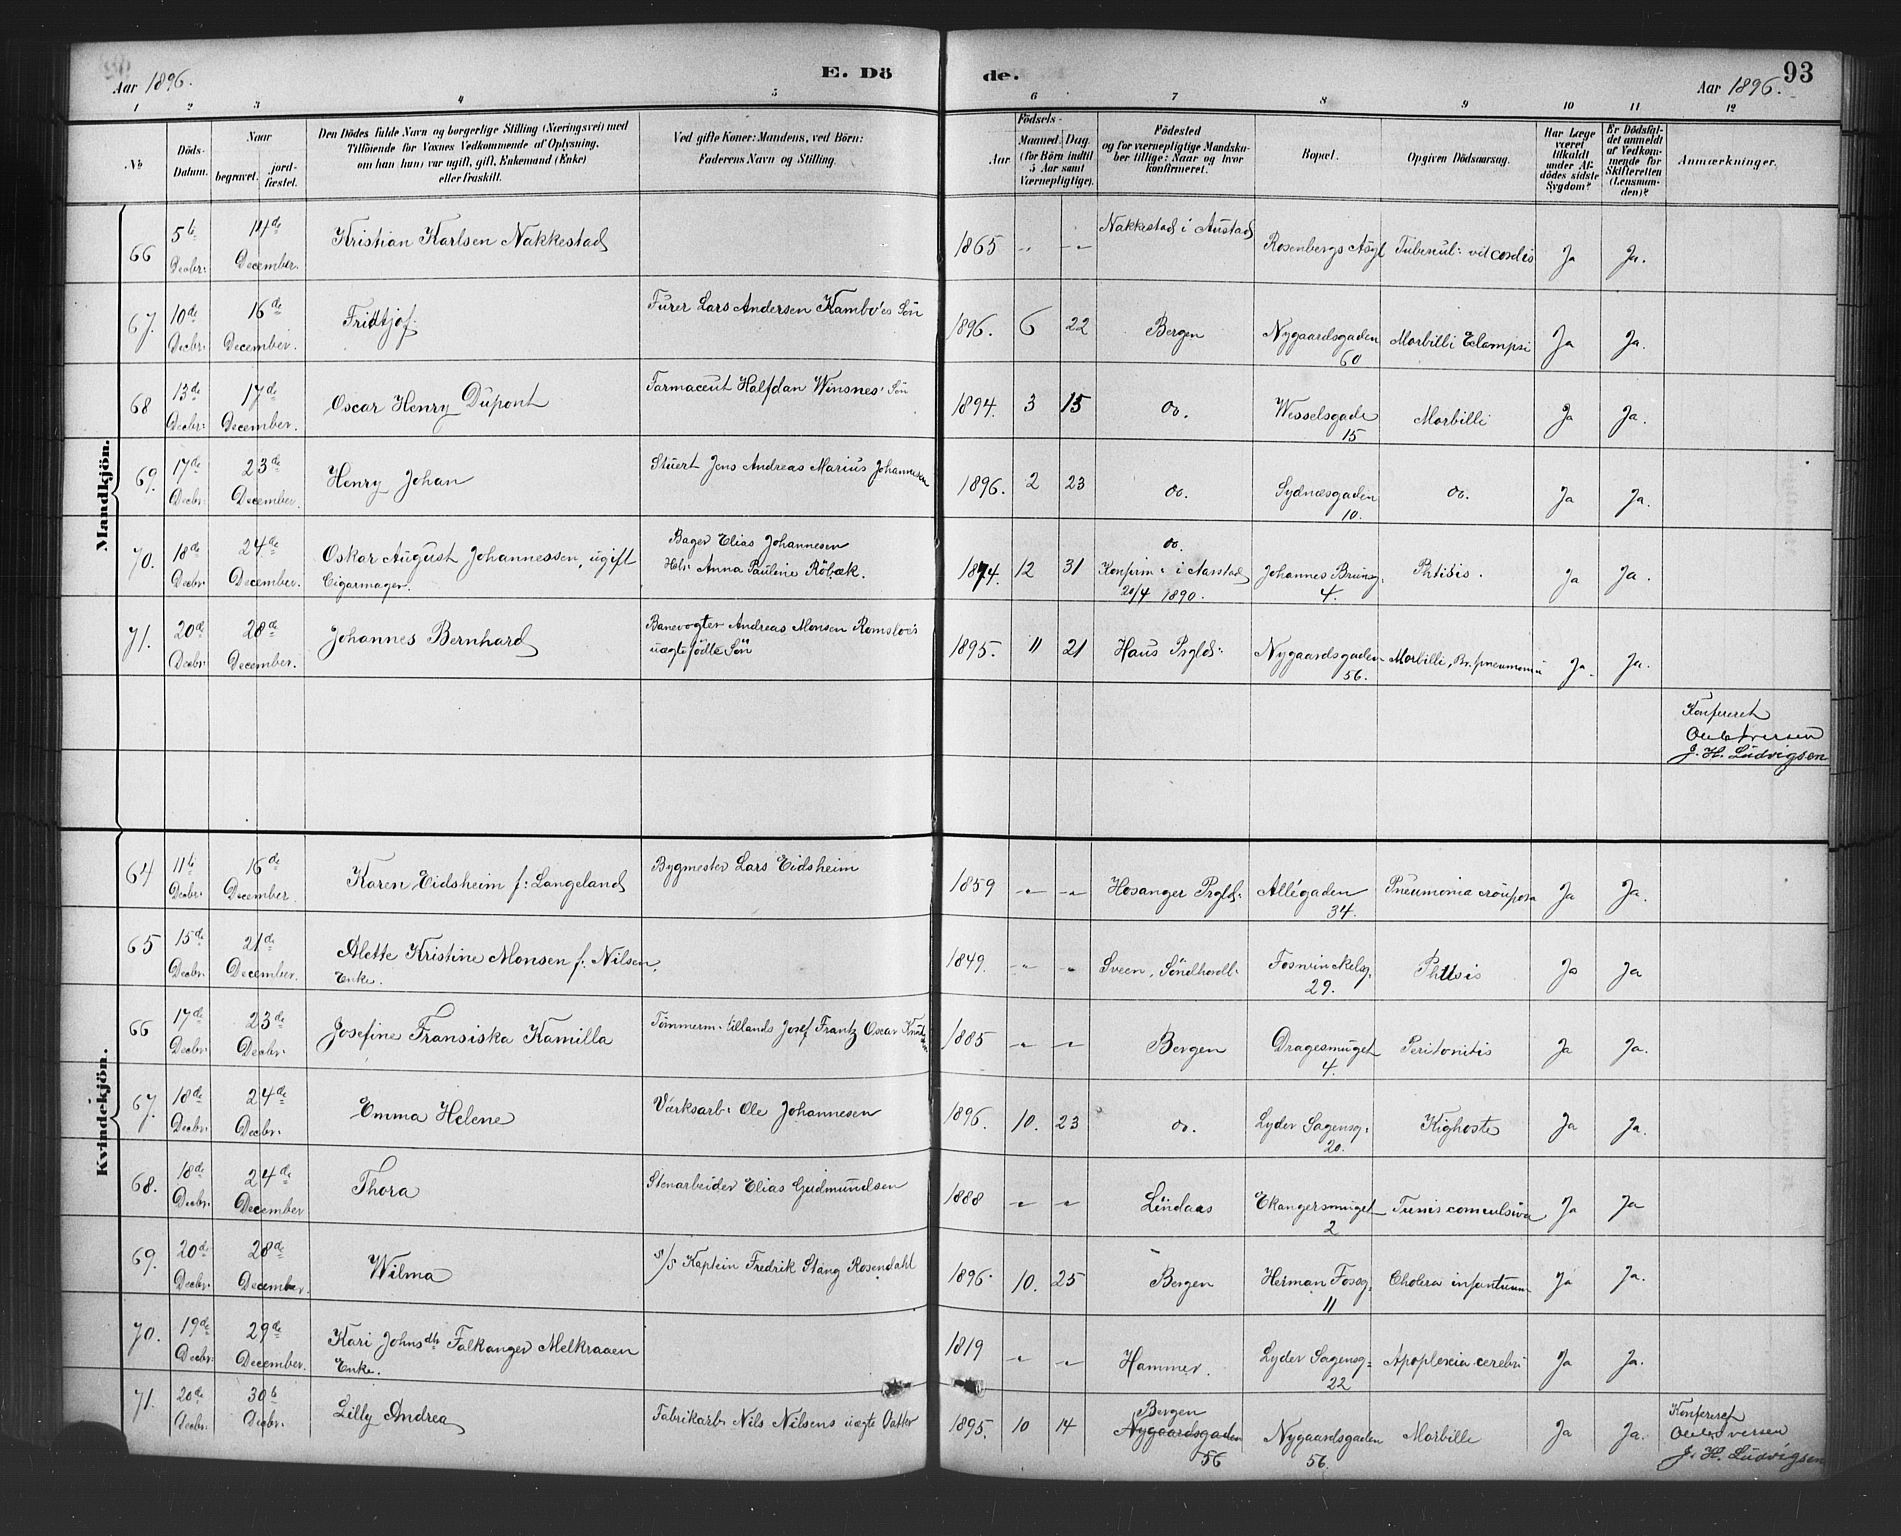 Aar 1896.
E. Dö
de.
Aar 1896.
93
1 2 3 4 5 6 7 8 9 10 11 12
No
Döds-
Datum.
Naar
begravet.
jord-
fæstet.
Den Dödes fulde Navn og borgerlige Stilling (Næringsvei) med
Tilföiende for Voxnes Vedkommende af Oplysning,
om han (hun) var ugift, gift, Enkemand (Enke)
eller fraskilt.
Ved gifte Koner: Mandens, ved Börn:
Faderens Navn og Stilling.
Födsels-
Aar
Maaned
Dag
(for Börn indtil
5 Aar samt
Værnepligtige).
Födested
og for værnepligtige Mandska-
ber tillige: Naar og hvor
konfirmeret.
Bopæl.
Opgiven Dödsaarsag.
Har Læge
været
tilkaldt
under Af-
dödes sidste
Sygdom?
Er Dödsfal-
det anmeldt
af Vedkom-
mende for
Skifteretten
(Lensman-
den)?
Anmærkninger.
Mandkjön.
66 5te Decbr: 11de December. Kristian Karlsen Nakkestad 1865 " " Nakkestad i Anstad Rosenbergs Asyl Tubercul: vit cordis Ja Ja.
67. 10de Decbr: 16de December. Fridtjof. Furer Lars Andersen Kambo'es Sön 1896. 6 22 Bergen Nygaardsgaden 60 Morbilli Eclampsi Ja Ja.
68 13de Decbr: 17de December. Oscar Henry Dupont Farmaceut Halfdan Winsnes' Sön 1894. 3 15 do. Wesselsgade 15 Morbilli Ja Ja.
69. 17de Decbr: 23de December. Henry Johan Stuert Jens Andreas Marius Johannesen 1896. 2 23 do. Sydnæsgaden 10. do. Ja Ja.
70. 18de Decbr: 24de December. Oskar August Johannessen, ugift
Cigarmager.
Bager Elias Johannesen
Hst: Anna Pauline Röbæk.
1874. 12 31 do.
Konfirm: i Aarstad
20/4 1890.
Johannes Brunsg: 4. Phtisis. Ja Ja.
71. 20de Decbr: 28de December. Johannes Bernhard Banevogter Andreas Monsen Romsloes
uægtefödte Sön
1895. 11 21 Haus Prgld: Nygaardsgaden 56. Morbilli, Br. pneumonia Ja. Ja.
Konfereret
Ole Iversen
J. H. Ludvigsen
Kvindekjön.
64 11te Decbr. 16de December. Karen Eidsheim f: Langeland Bygmester Lars Eidsheim 1859 " " Hosanger Prgld: Allégaden 34. Pneumonia crouposa Ja Ja.
65 15de Decbr. 21de December. Alette Kristine Monsen f: Nilsen,
Enke.
1849. " " Sveen, Söndhordl. Fosvinckelsg: 29. Phtisis Ja Ja
66 17de Decbr. 23de Decbr. Josefine Fransiska Kamilla Tömmerm: tillands Josef Frantz Oscar 1885 " " Bergen Dragesmuget 4. Peritonitis Ja Ja.
67. 18de Decbr. 24de Decbr. Emma Helene Værksarb: Ole Johannesen 1896. 10. 23 do. Lyder Sagensg: 20. Kighoste Ja Ja.
68. 18de Decbr. 24de December Thora Stenarbeider Elias Gudmundsen 1888 " " Lindaas Ekangersmuget 2 Tussis convulsiva Ja Ja
69. 20de Decbr. 28de December. Wilma s/s Kaptein Fredrik Stang Rosendahl 1896. 10. 25 Bergen Herman Fossg: 11 Cholera infantuum Ja Ja.
70. 19de Decbr. 29de December. Kari Johnsdtr Falkanger Melkraaen
Enke.
1819 " " Hammer. Lyder Sagensg: 22 Apoplexia cerebri Ja Ja.
71. 20de Decbr. 30te Decbr. Lilly Andrea Fabrikarb: Nils Nilsens uægte Datter 1895. 10 14 Bergen
Nygaardsgaden 56
Nygaardsgaden 56. Morbille Ja Ja.
Konfereret
Ole Iversen
J. H. Ludvigsen